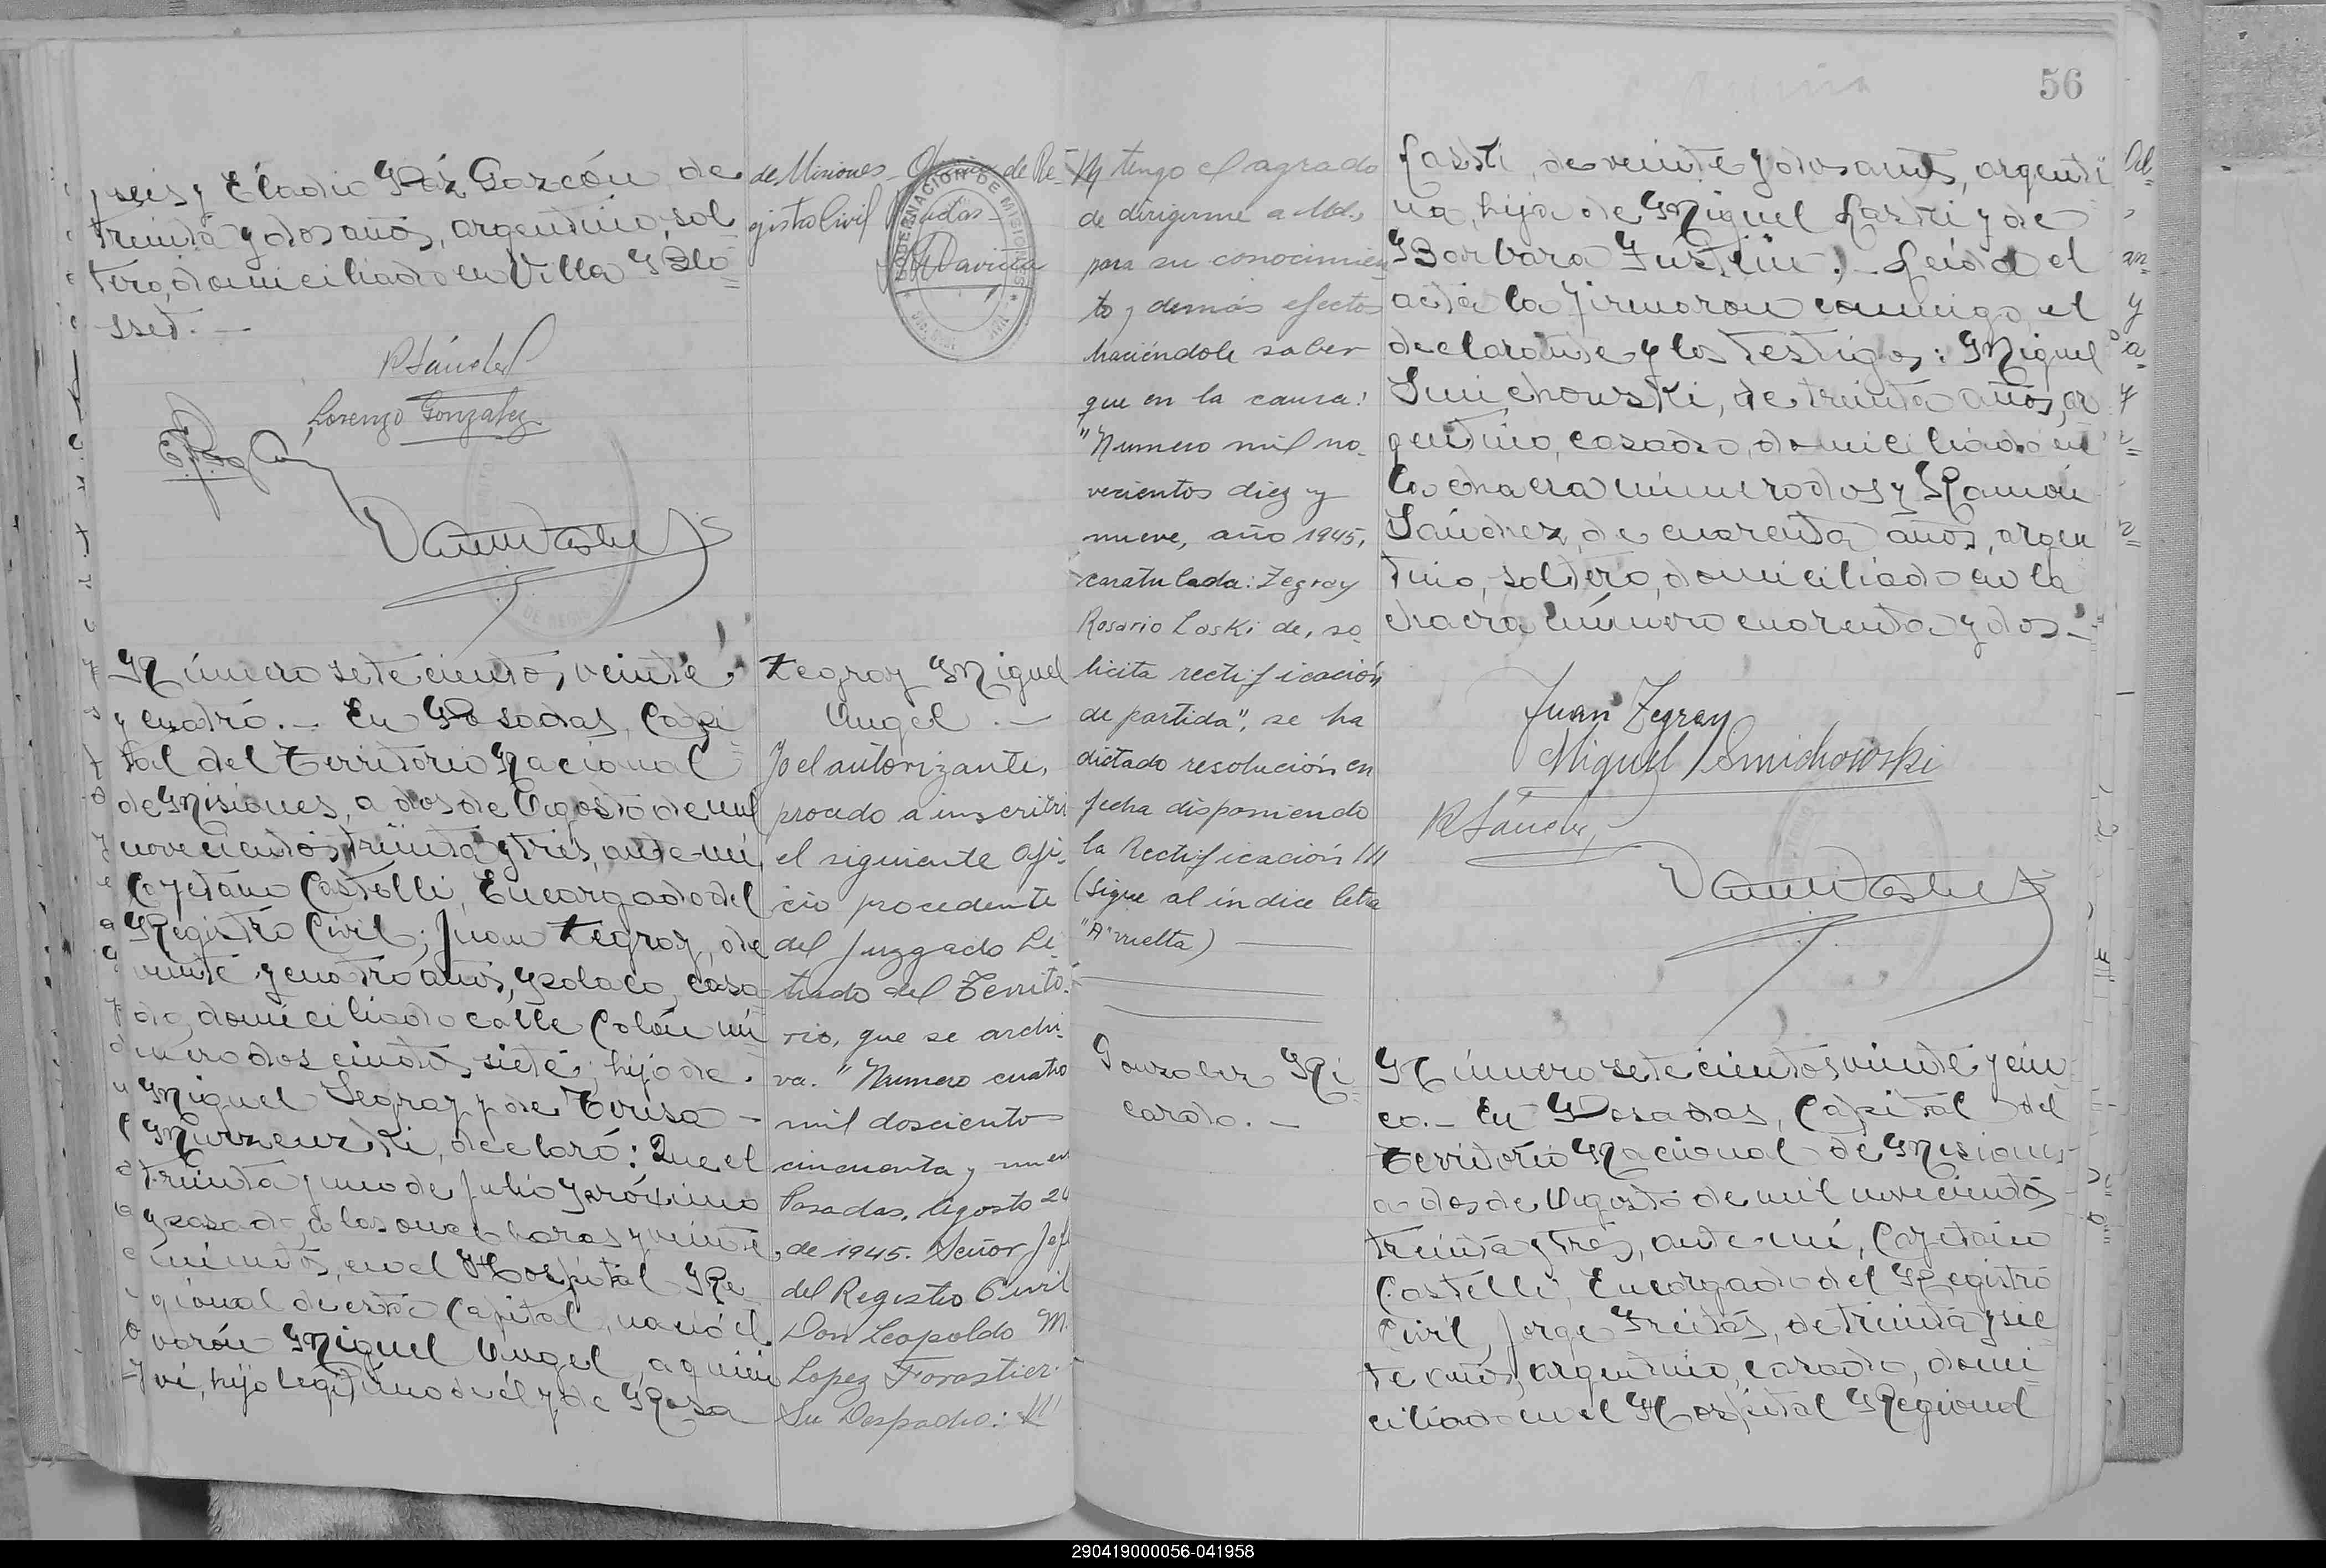 56
y seis y Eladio Paz Garzón de
treinta y dos años, argentino, sol
tero, domiciliado en Villa Blo
sset.
de Misiones Oficina de Re-
gistro Civil
GOBERNACION DE MISIONES
RSánchez
Lorenzo Gonzalez
Número setecientos veinte
y cuatro. En Posadas, Capi
tal del Territorio Nacional
de Misiones, a dos de Agosto de mil
novecientos treinta y tres, ante mí,
Cayetano Castelli, Encargado del
Registro Civil; Juan Zegray, de
veinte y cuatro años, polaco, casa
do, domiciliado calle Colón nú
mero doscientos siete, hijo de
Miguel Segray y de Teresa
declaró: Que el
treinta y uno de Julio próximo
pasado, a las once horas y veinte
minutos, en el Hospital Re
gional de esta Capital, nació el
varón Miguel Angel, a quien
ví, hijo legítimo de él y de Rosa
Zegray Miguel
Angel.
Yo el autorizante,
procedo a inscribir
el siguiente ofi-
cio procedente
del Juzgado Le-
trado del Territo-
rio, que se archi-
va. "Numero cuatro
mil dosciento
cincuenta y nuev
Posadas, Agosto 24
de 1945. Señor Jefe
del Registro Civil
Don Leopoldo M.
Lopez Forastier.
Su Despacho: ///
tengo el agrado
de dirigirme a Ud.,
para su conocimien
to y demás efectos
haciéndole saber
que en la causa:
"Numero mil no-
vecientos diez y
nueve, año 1945,
caratulada: Zegray
Rosario Laski de, so-
licita rectificación
de partida", se ha
dictado resolución en
fecha disponiendo
la Rectificación ///
(Sigue al índice letra
"A" vuelta)
Laski, de veinte y dos años, argenti
na, hija de Miguel Laski y de
Barbara Leída el
acta la firmaron conmigo el
declarante y los testigos: Miguel
Smichowski, de treinta años, ar
gentino, casado, domiciliado en
la chacra número dos y Ramón
Sánchez, de cuarenta años, argen
tino, soltero, domiciliado en la
chacra número cuarenta y dos.
Juan Zegray
Miguel Smichowski
RSánchez
Gonzalez Ri
cardo.
Número setecientos veinte y cin
co. En Posadas, Capital del
Territorio Nacional de Misiones
a dos de Agosto de mil novecientos
treinta y tres, ante mí, Cayetano
Castelli, Encargado del Registro
Civil, Jorge Freitas, de treinta y sie
te años, argentino, casado, domi
ciliado en el Hospital Regional
290419000056-041958